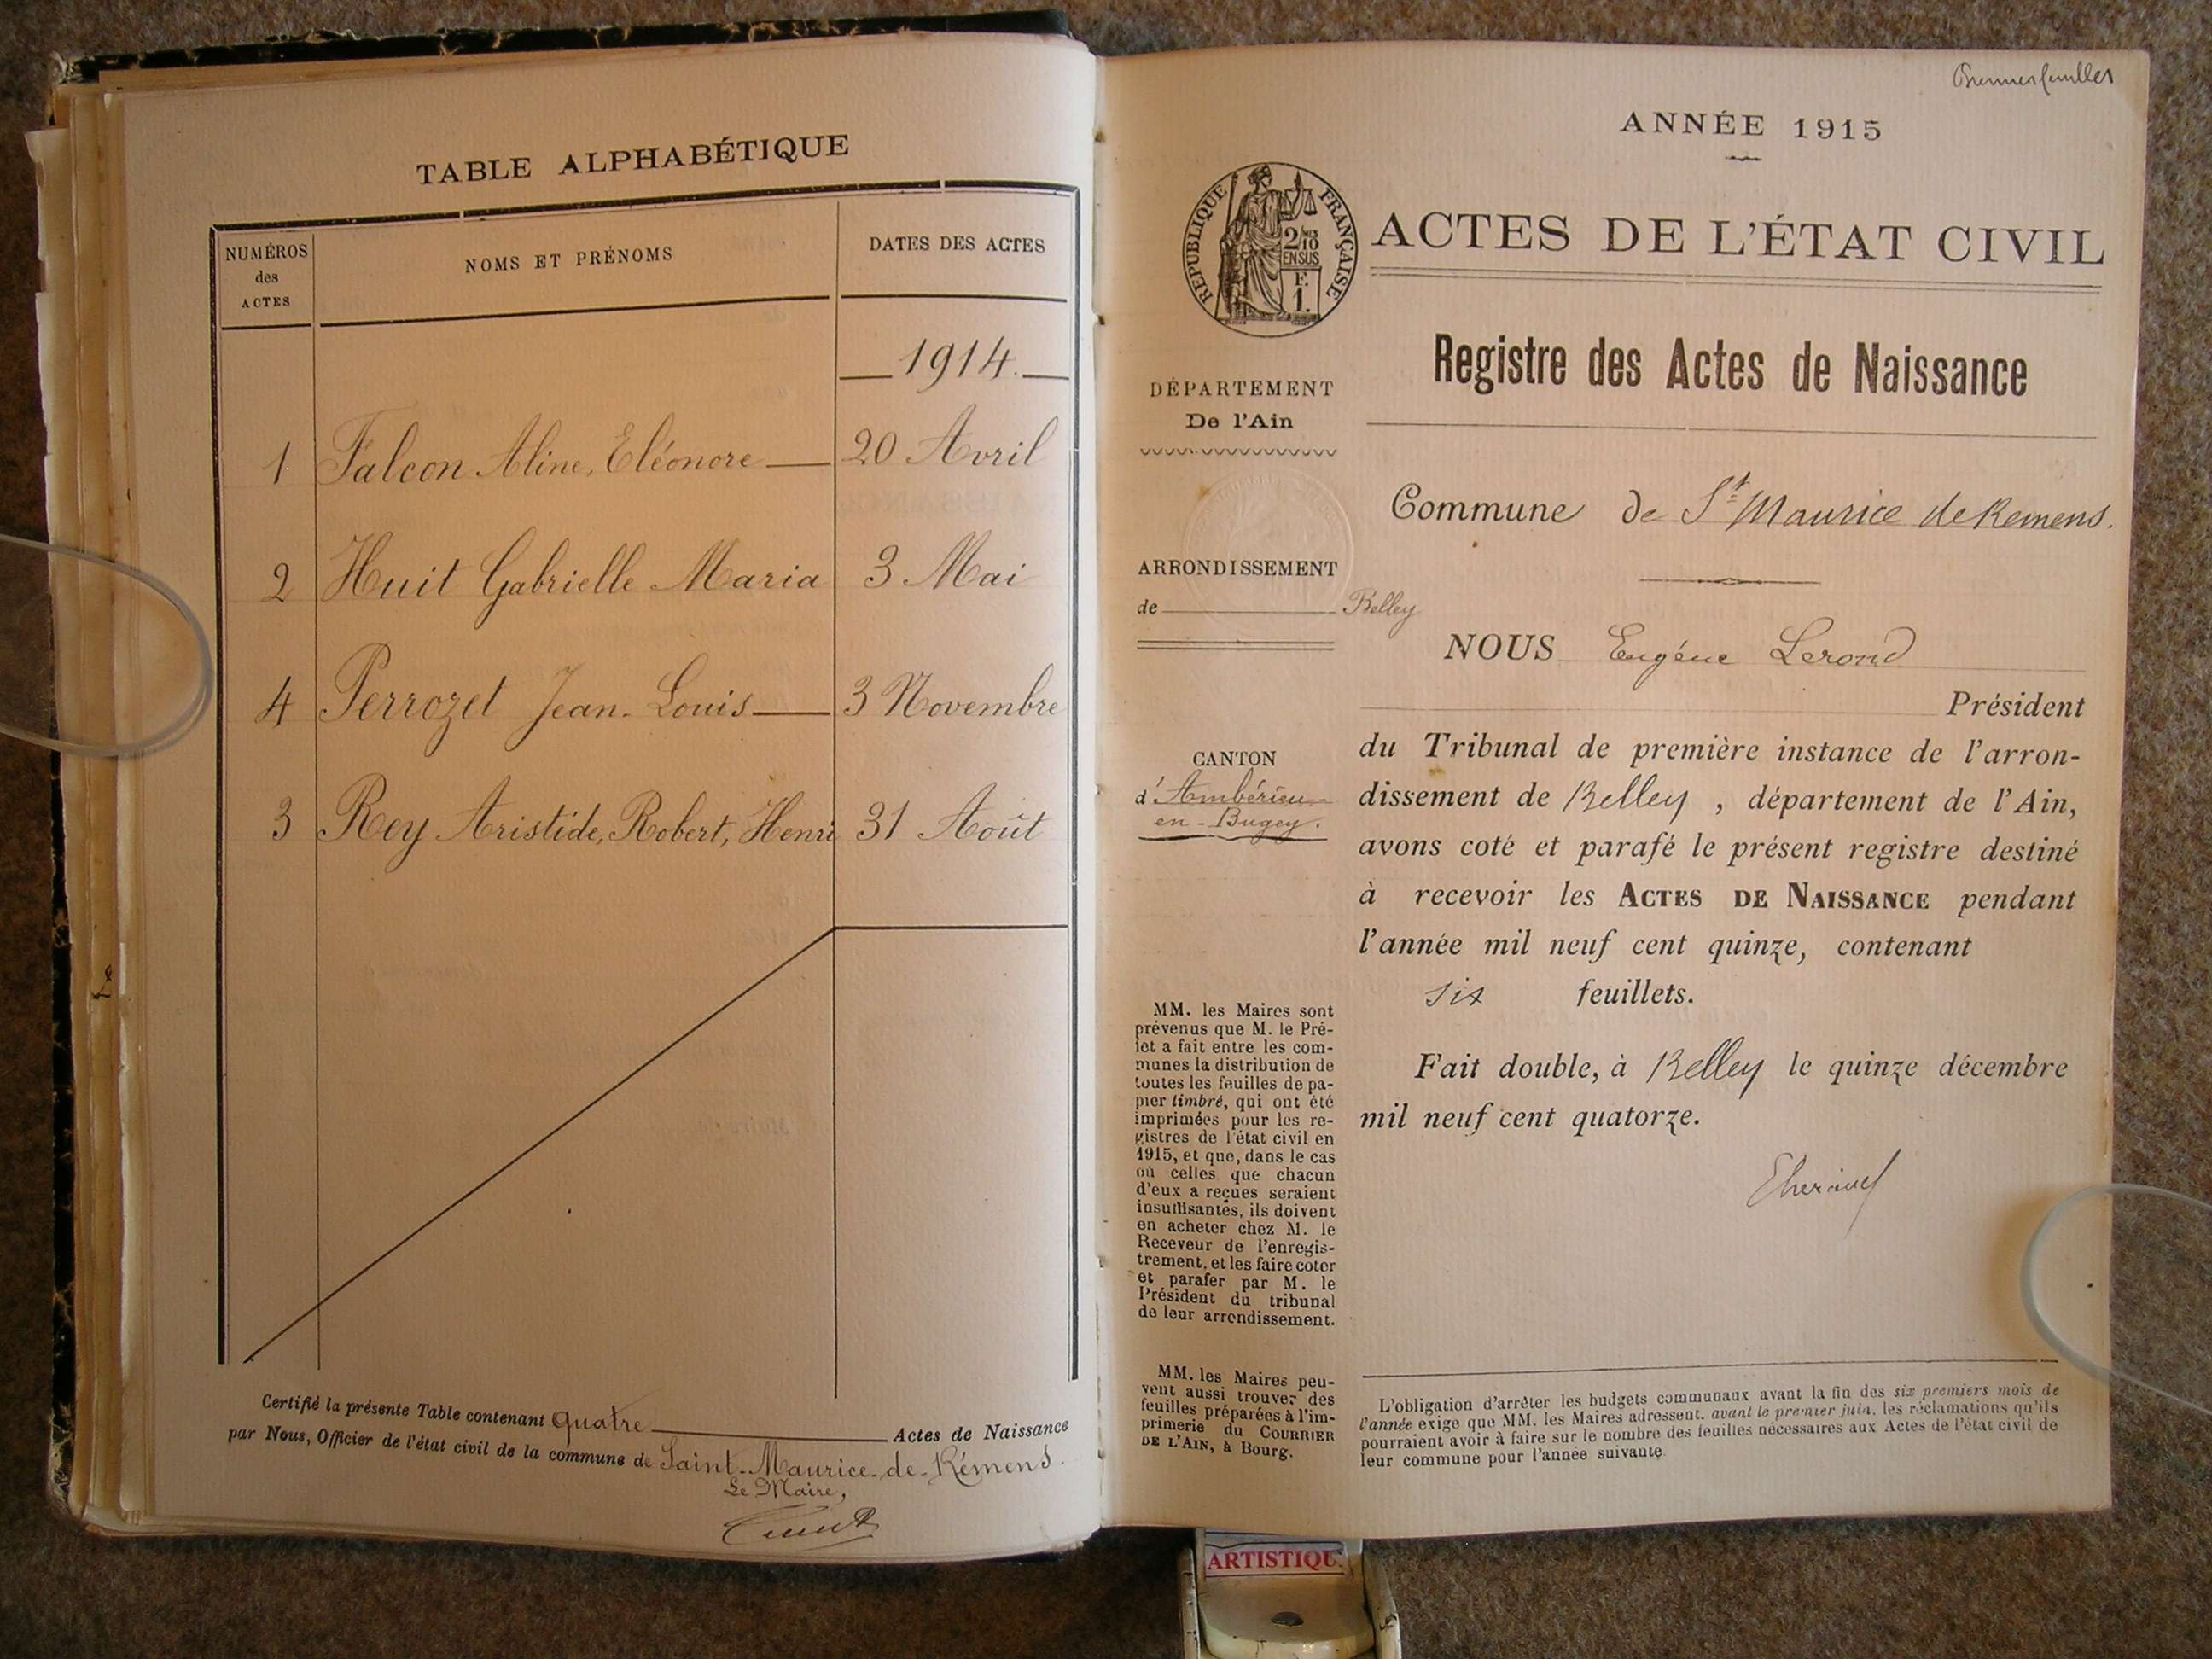 TABLE ALPHABÉTIQUE
NUMÉROS
des
ACTES
NOMS ET PRÉNOMS
DATES DES ACTES
1914
1 Falcon Aline, Eléonore 20 Avril
2 Huit Gabrielle Maria 3 Mai
4 Perrozet Jean-Louis 3 Novembre
3 Rey Aristide, Robert, Henri 31 Août
Certifié la présente Table contenant quatre Actes de Naissance
par Nous, Officier de l'état civil de la commune de Saint-Maurice-de-Rémens.
Le Maire,
Premier feuillet
ANNÉE 1915
RÉPUBLIQUE FRANÇAISE
2/10
EN SUS
F.
1.
ACTES DE L'ÉTAT CIVIL
Registre des Actes de Naissance
DÉPARTEMENT
De l'Ain
Commune de St Maurice de Remens.
ARRONDISSEMENT
de Belley
NOUS Eugène Lerond
Président
CANTON
d'Ambérieu-
en-Bugey.
du Tribunal de première instance de l'arron-
dissement de Belley, département de l'Ain,
avons coté et parafé le présent registre destiné
à recevoir les ACTES DE NAISSANCE pendant
l'année mil neuf cent quinze, contenant
six feuillets.
Fait double, à Belley le quinze décembre
mil neuf cent quatorze.
MM. les Maires sont
prévenus que M. le Pré-
fet a fait entre les com-
munes la distribution de
toutes les feuilles de pa-
pier timbré, qui ont été
imprimées pour les re-
gistres de l'état civil en
1915, et que, dans le cas
où celles que chacun
d'eux a reçues seraient
insuffisantes, ils doivent
en acheter chez M. le
Receveur de l'enregis-
trement, et les faire coter
et parafer par M. le
Président du tribunal
de leur arrondissement.
MM. les Maires peu-
vent aussi trouver des
feuilles préparées à l'im-
primerie du COURRIER
DE L'AIN, à Bourg.
L'obligation d'arrêter les budgets communaux avant la fin des six premiers mois de
l'année exige que MM. les Maires adressent, avant le premier juin, les réclamations qu'ils
pourraient avoir à faire sur le nombre des feuilles nécessaires aux Actes de l'état civil de
leur commune pour l'année suivante.
ARTISTIQU